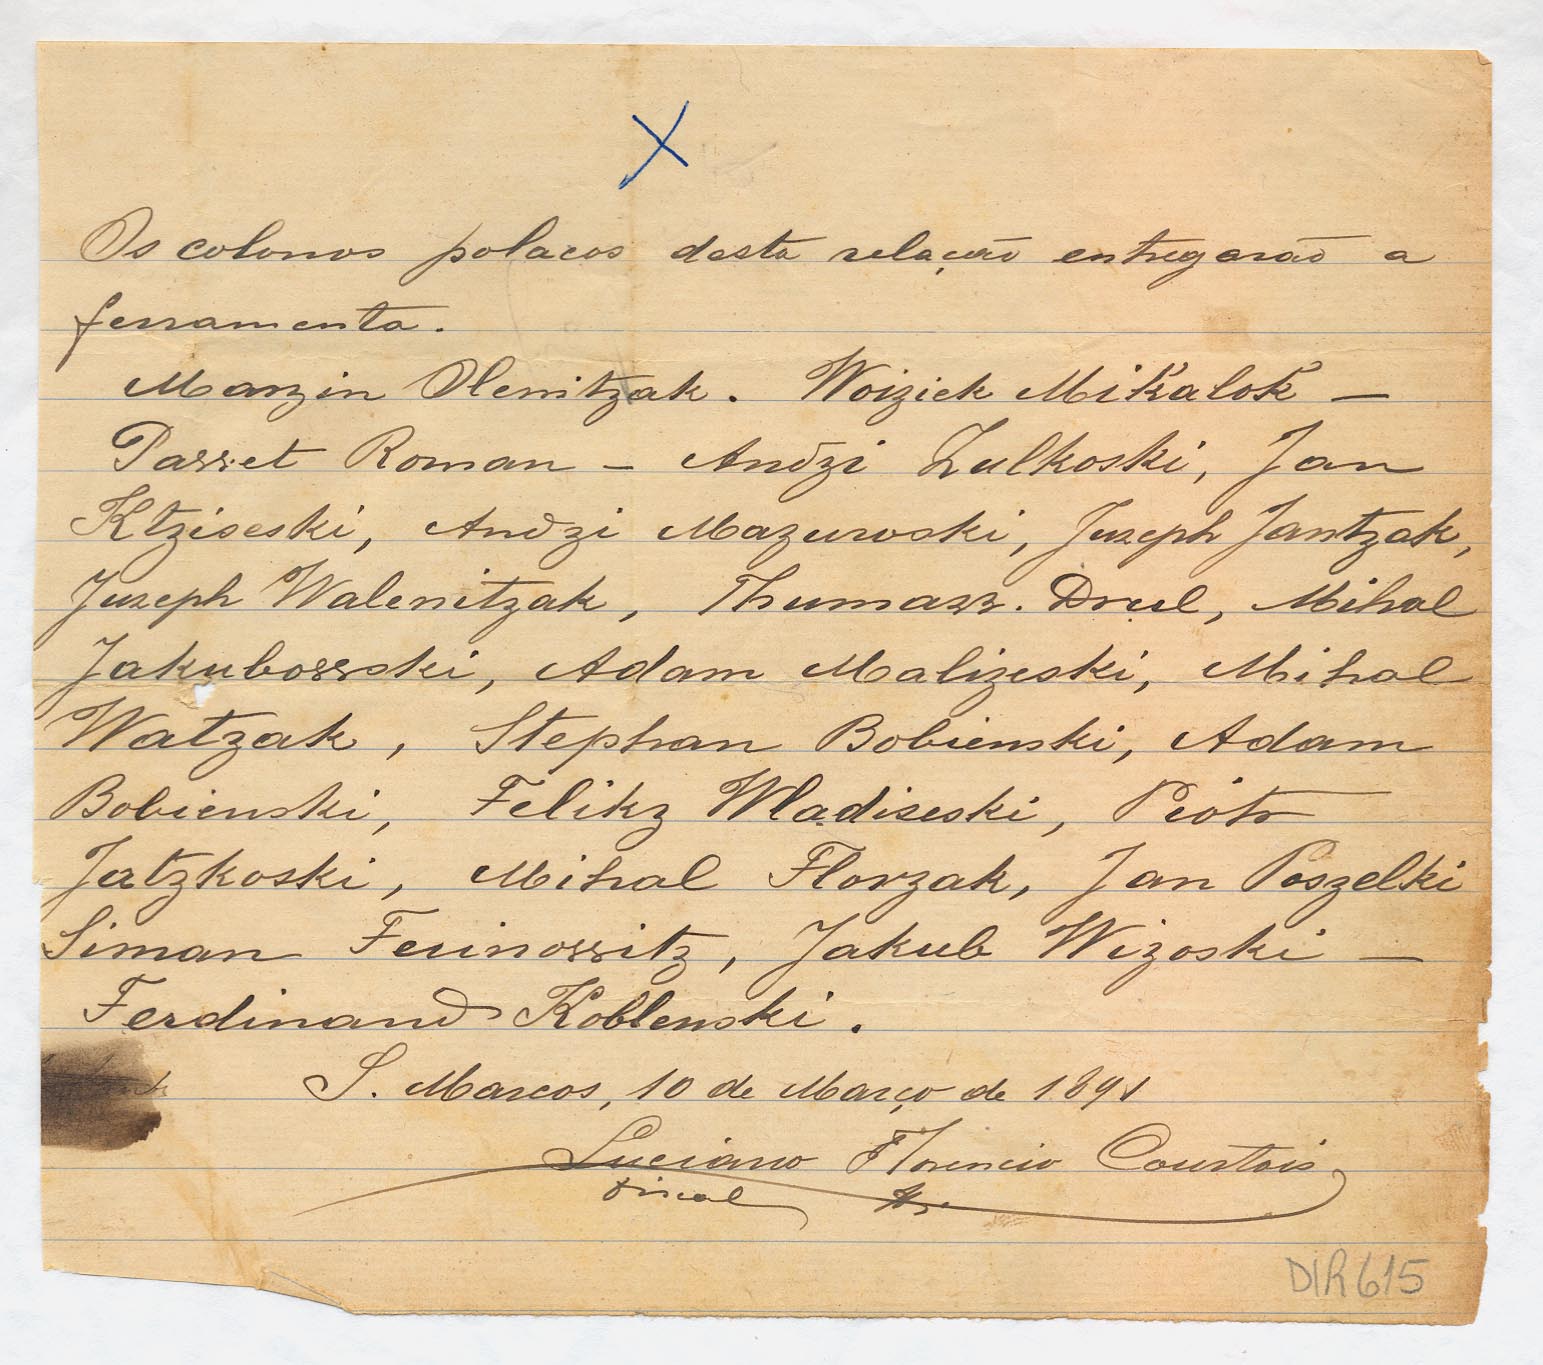 Os colonos polacos desta relação entregarão a
ferramenta.
Marzin Olenitzak. Woiziek Mikalok —
Passet Roman — Andzi Zulkoski, Jan
Ktziseski, Andzi Mazuroski, Juzeph Jantzak,
Juzeph Walenitzak, Thumass. Drul, Mihal
Jakubosski, Adam Malizeski, Mihal
Watzak, Stephan Bobienski, Adam
Bobienski, Felikz Wladiseski, Piotr
Jatzkoski, Mihal Florzak, Jan Poszelki
Siman Ferinossitz, Jakub Wizoski —
Ferdinand Koblenski.
S. Marcos, 10 de Março de 1891
Luciano Florencio Courtois
Fiscal
DIR615